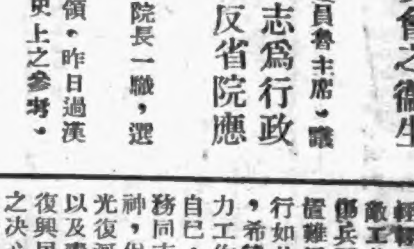 會之衞生
員魯主席。議
志爲行政
反省院應
院長一職，選
領。昨日過漢
史上之參考。
敵工
置難
行如
，希
力工
自巳
務同
神，
光復
以及
復興
之决